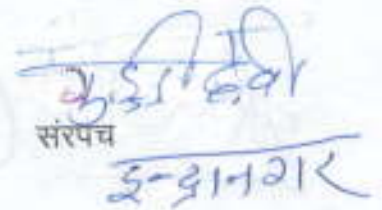 गुड्डी देवी
संरपच
इन्द्रानगर